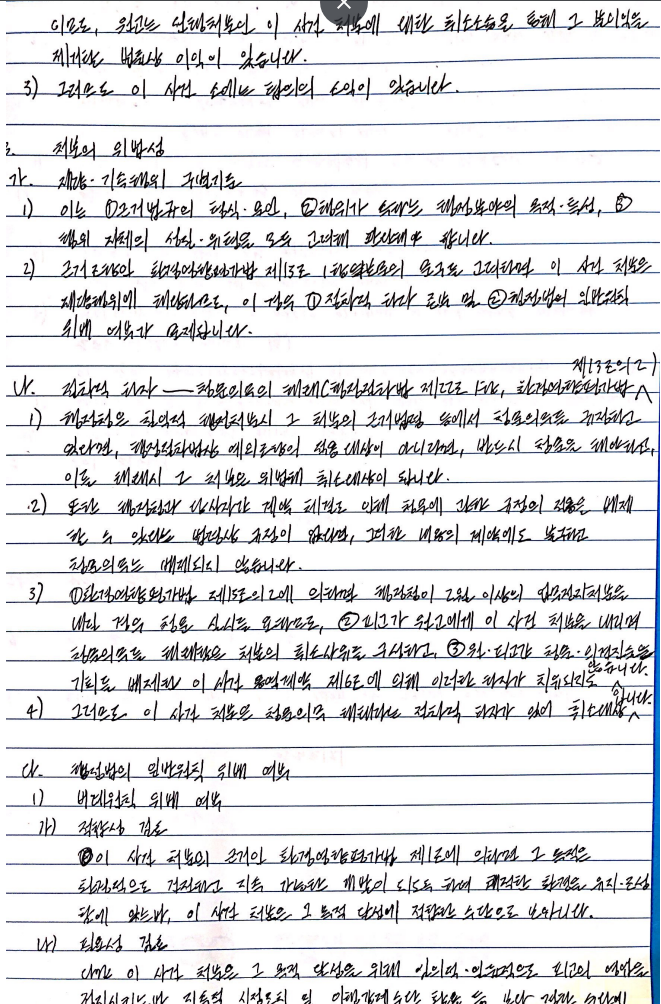 이므로, 원고는 선행처분인 이 사건 처분에 대한 취소소송을 통해 그 불이익을
제거할 법률상 이익이 있습니다.
3) 그러므로 이 사건 소에는 협의의 소익이 있습니다.
처분의 위법성
가. 재량·기속행위 구별기준
1) 이는 ①근거법규의 형식·문언, ②행위가 속하는 행정분야의 목적·특성, ③
행위 자체의 성질·유형을 모두 고려해 판단해야 합니다.
2) 근거조항인 환경영향평가법 제13조 1항 문구를 고려하면 이 사건 처분은
재량행위에 해당하므로, 이 경우 ①절차적 하자 존부 및 ②행정법의 일반원칙
위배 여부가 문제됩니다.
제13조의2)
나. 절차적 하자 — 청문의무의 해태(행정절차법 제22조 1항, 환경영향평가법
1) 행정청은 침익적 행정처분시 그 처분의 근거법령 등에서 청문의무를 규정하고
있다면, 행정절차법상 예외조항의 적용대상이 아니라면, 반드시 청문을 해야하고,
이를 해태시 그 처분은 위법해 취소대상이 됩니다.
2) 또한 행정청과 당사자간 계약 체결로 인해 청문에 관한 규정의 적용을 배제
할 수 있다는 법령상 규정이 없다면, 그러한 내용의 계약에도 불구하고
청문의무는 배제되지 않습니다.
3) ①환경영향평가법 제13조의2에 의하면 행정청이 2월 이상의 업무정지처분을
내릴 경우 청문 실시를 요하므로, ②피고가 원고에게 이 사건 처분을 내리며
청문의무를 해태함은 처분의 취소사유를 구성하고, ③원·피고간 청문·의견진술
기회를 배제한 이 사건 용역계약 제6조에 의해 이러한 하자가 치유되지도 않습니다.
4) 그러므로 이 사건 처분은 청문의무 해태라는 절차적 하자가 있어 취소대상 입니다.
다. 행정법의 일반원칙 위배 여부
1) 비례원칙 위배 여부
가) 적합성 검토
이 사건 처분의 근거인 환경영향평가법 제1조에 의하면 그 목적은
환경적으로 건전하고 지속 가능한 개발이 되도록 하여 쾌적한 환경을 유지·조성
함에 있는바, 이 사건 처분은 그 목적 달성에 적합한 수단으로 보입니다.
나) 필요성 검토
이 사건 처분은 그 목적 달성을 위해 일의적·일률적으로 원고의 영업을